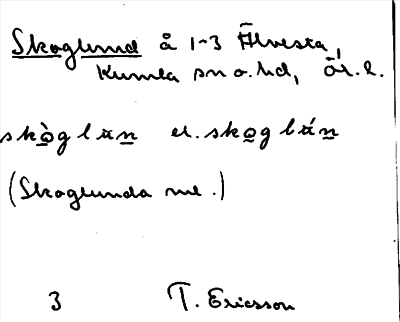 Skoglund å 1-3 Älvesta,
Kumla sn o. hd, Ör. l.
skòglun el. skoglún
(Skoglunda me.)
3 T. Ericsson